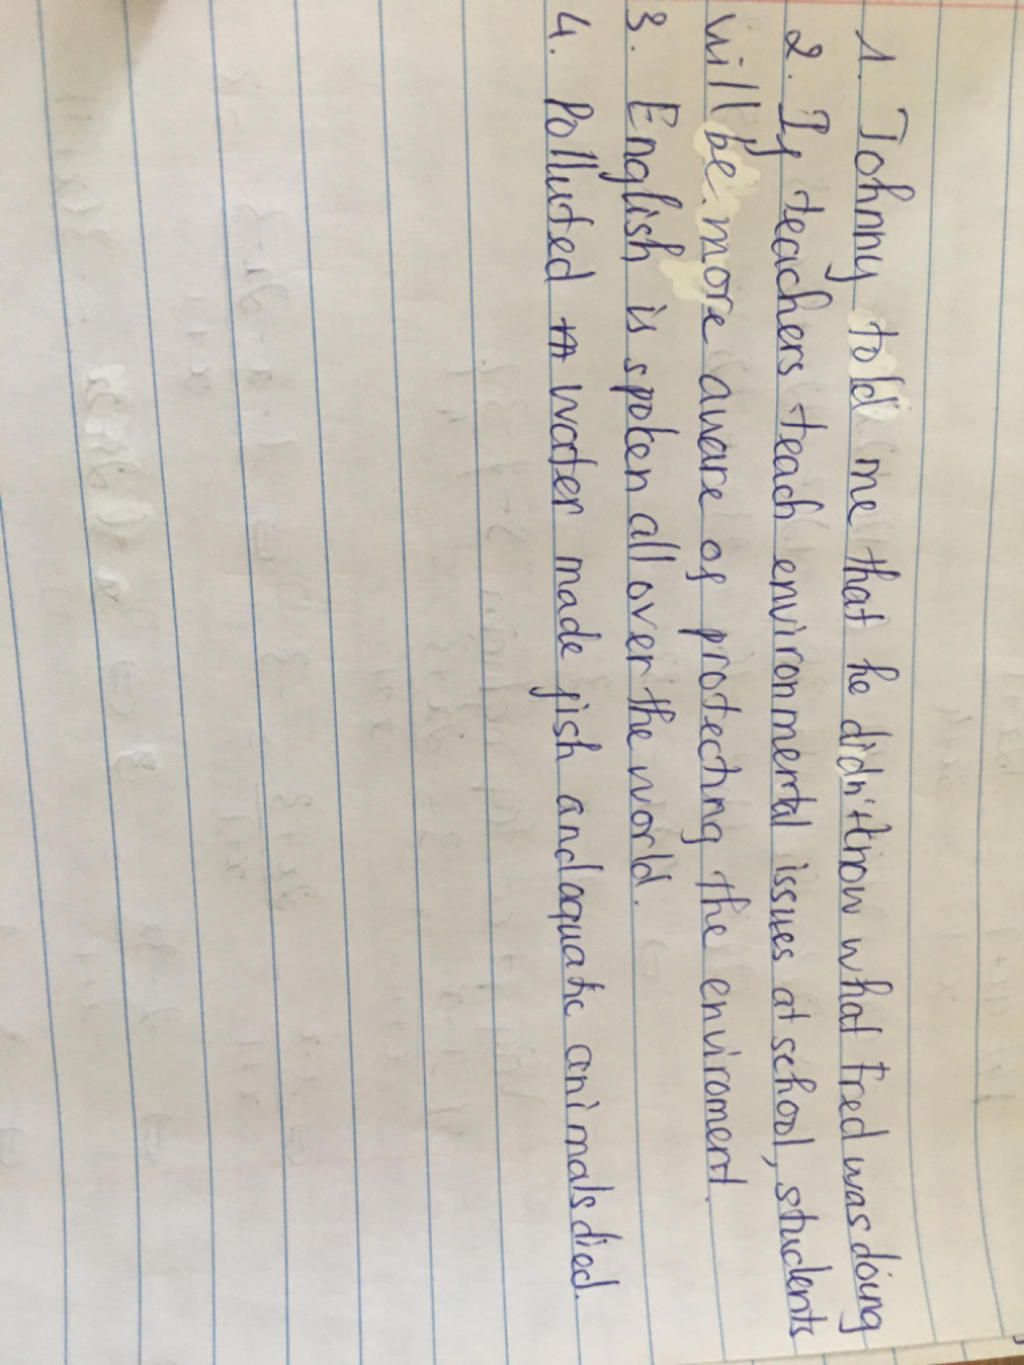 1. Johnny told me that he didn't know what Fred was doing
2. If teachers teach environmental issues at school, students
will be more aware of protecting the enviroment.
3. English is spoken all over the world.
4. Polluted water made fish and aquatic animals died.